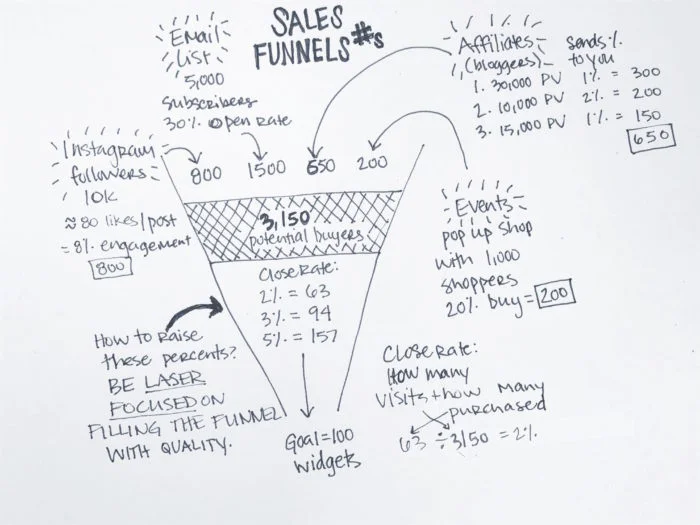 SALES
FUNNELS #s
EMail
List
5,000
Subscribers
30% Open Rate
Affiliates
(bloggers)
1. 30,000 PV
2. 10,000 PV
3. 15,000 PV
sends %
to you
1% = 300
2% = 200
1% = 150
650
Instagram
followers
10K
≈80 likes/post
= 8% engagement
800
800
1500
650
200
3,150
potential buyers
Close Rate:
2% = 63
3% = 94
5% = 157
Goal=100
widgets
Events
pop up shop
with 1,000
shoppers
20% buy = 200
How to raise
these percents?
BE LASER
FOCUSED ON
FILLING THE FUNNEL
WITH QUALITY.
Close Rate:
How many
visits + how many
purchased
63 ÷ 3150 = 2%